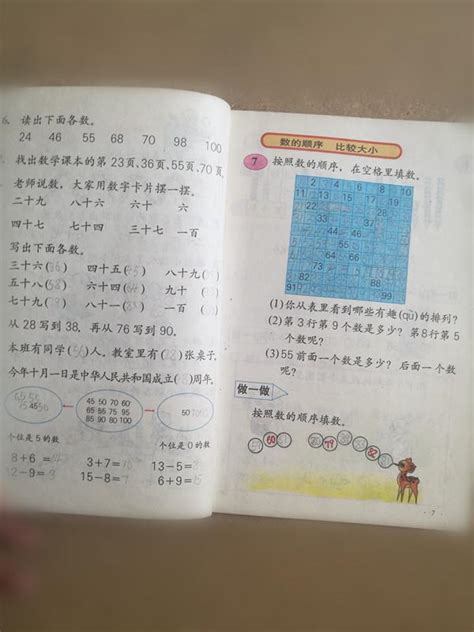 6. 读出下面各数。
24 46 55 68 70 98 100
找出数学课本的第23页、36页、55页、70页。
老师说数，大家用数字卡片摆一摆。
二十九 八十六 六十 六
四十七 七十四 三十七 一百
写出下面各数。
三十六(36) 四十五(45) 八十九(
五十八(58) 六十四(64) 九十 (
七十九( 八十一( 一百 (
从28写到38，再从76写到90。
本班有同学( )人，教室里有( )张桌子。
今年十月一日是中华人民共和国成立( )周年。
45 50 70 60
65 85 75 95
85 90 80 100
50
个位是5的数 个位是0的数
8+6= 3+7=10 13-5=8
12-9=3 15-8=7 6+9=15
数的顺序 比较大小
7 按照数的顺序，在空格里填数。
2 4 6 8 10
11
22
33
34
37
44 46
55
66
64
73
77
82 88
91 99
(1)你从表里看到哪些有趣(qù)的排列?
(2)第3行第9个数是多少? 第8行第5
个数呢?
(3)55前面一个数是多少? 后面一个数
呢?
做一做
按照数的顺序填数。
60 79 82
7